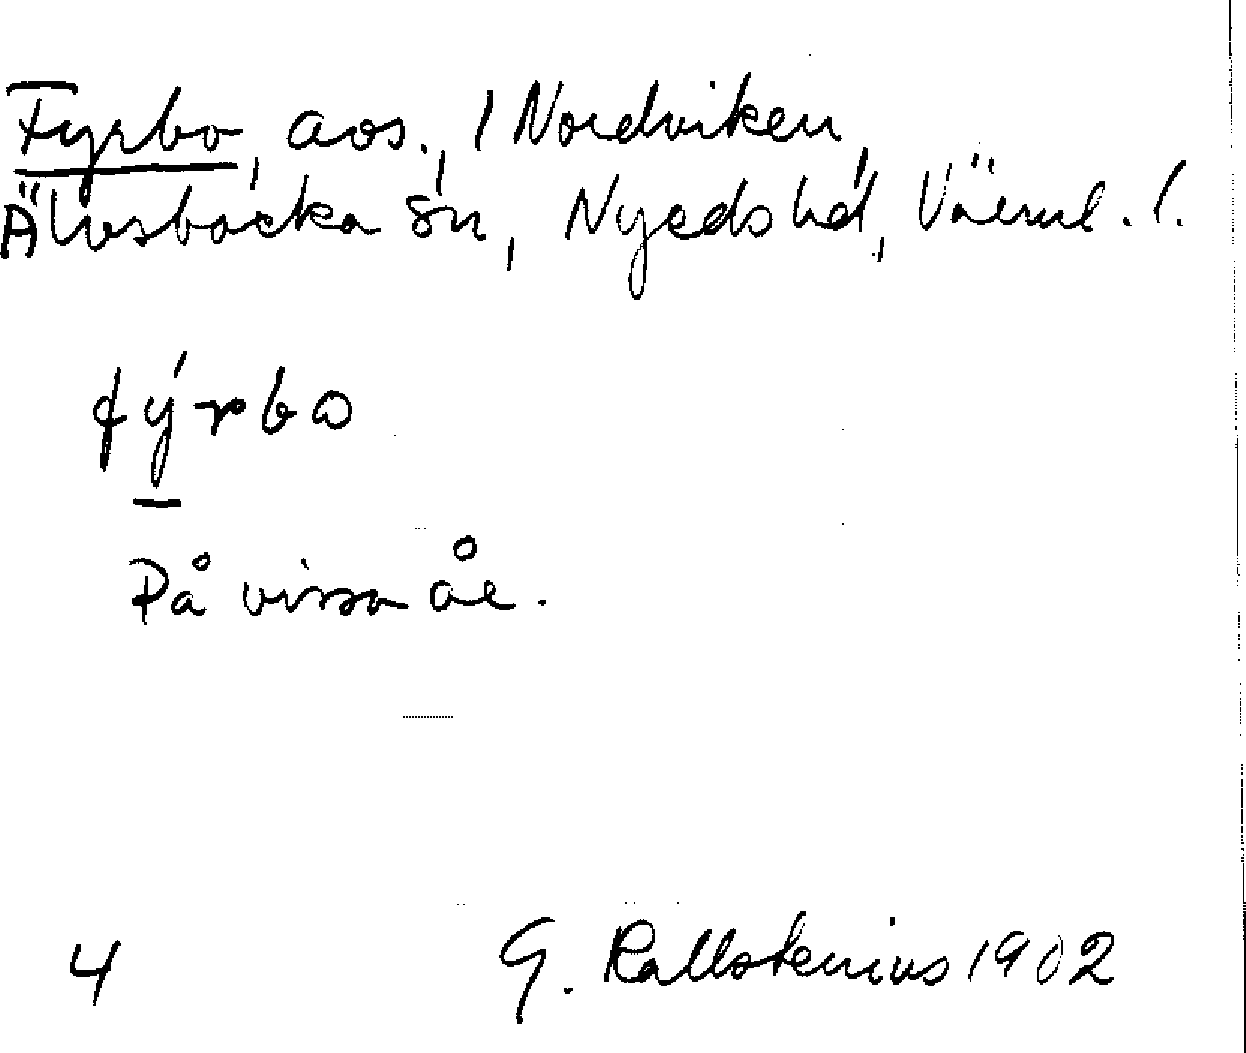 Fyrbo, aos., / Nordviken,
Älvsbacka sn, Nyeds hd, Värml. /.
fýrbo
På vissa år.
4 G. Kallstenius 1902